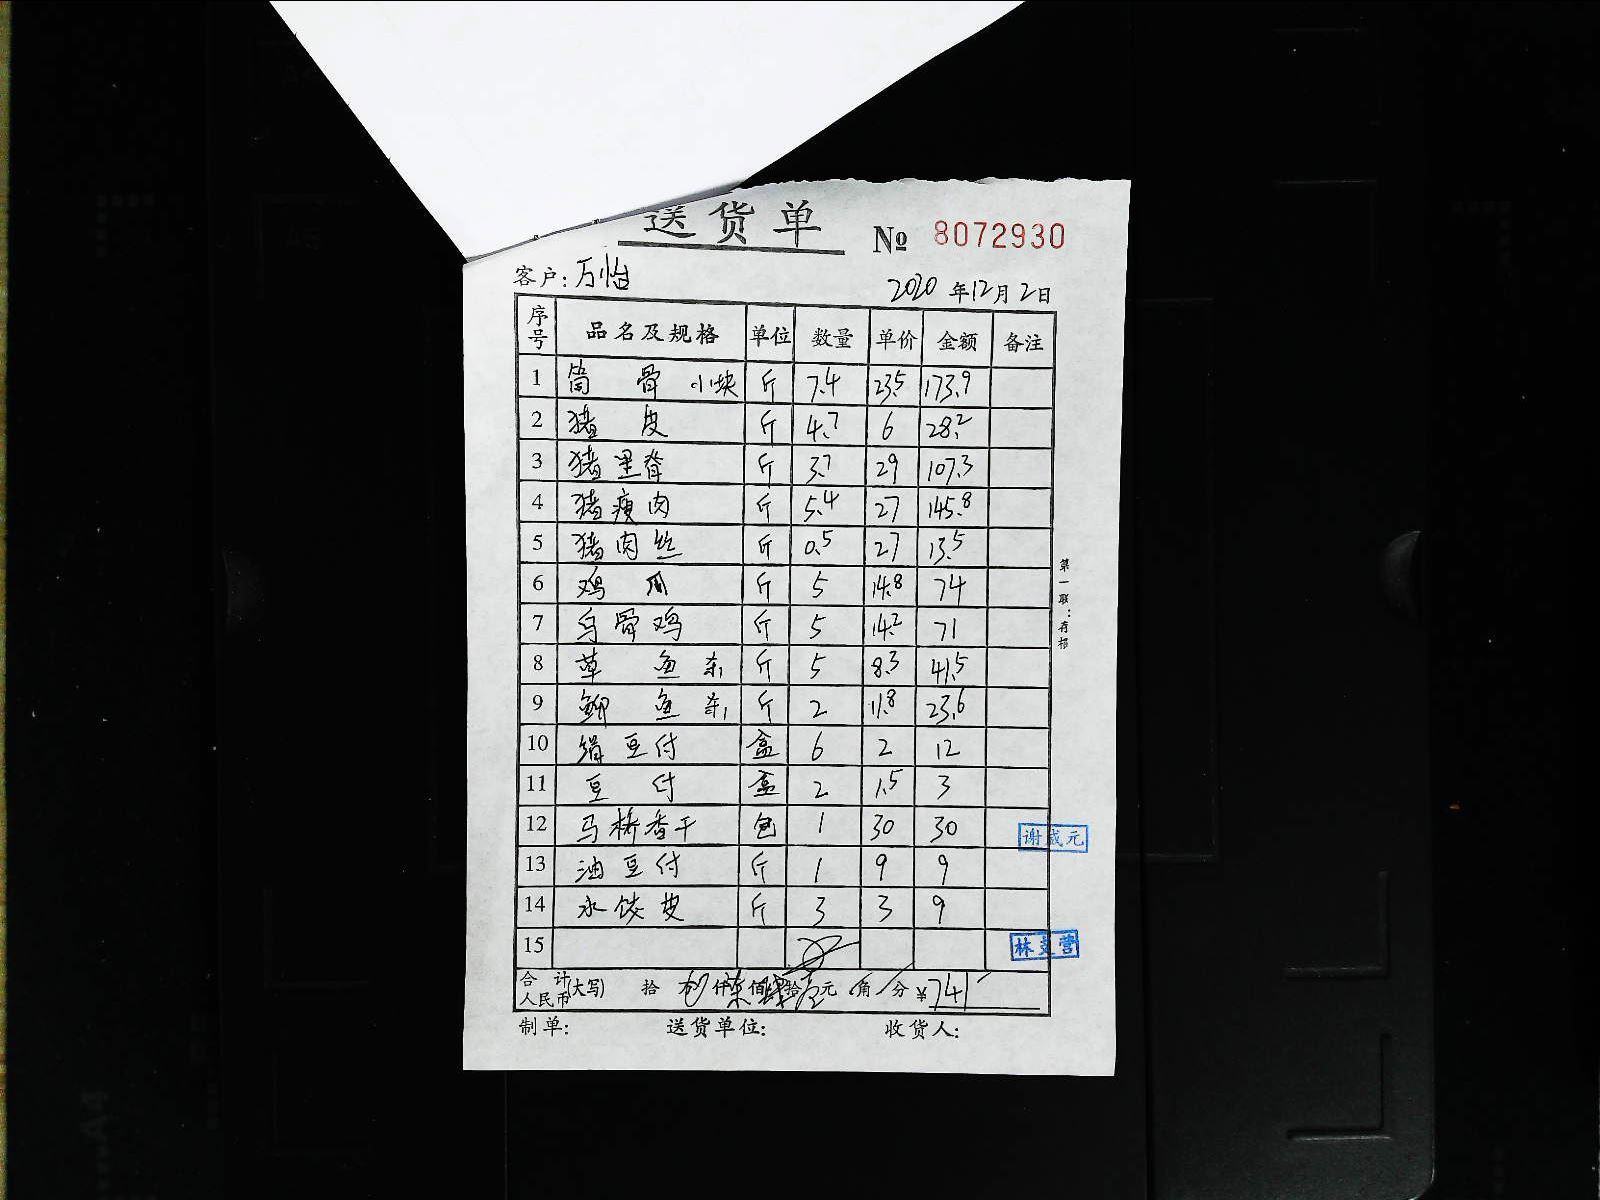 送货单 № 8072930
客户: 万怡 2020 年 12 月 2 日
序号 品名及规格 单位 数量 单价 金额 备注
1 筒骨 小块 斤 7.4 23.5 173.9
2 猪皮 斤 4.7 6 28.2
3 猪里脊 斤 3.7 29 107.3
4 猪瘦肉 斤 5.4 27 145.8
5 猪肉丝 斤 0.5 27 13.5
6 鸡爪 斤 5 14.8 74
7 乌骨鸡 斤 5 14.2 71
8 草鱼 杀 斤 5 8.3 41.5
9 鲫鱼 杀 斤 2 11.8 23.6
10 绢豆付 盒 6 2 12
11 豆付 盒 2 1.5 3
12 马桥香干 包 1 30 30
谢 元
13 油豆付 斤 1 9 9
14 水饺皮 斤 3 3 9
15
林 营
合计人民币(大写) 拾 仟 柒 佰 肆 拾 壹 元 角 分 ¥ 741
制单: 送货单位: 收货人:
第一联:存根